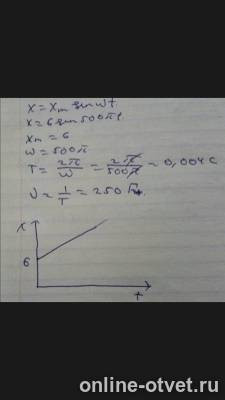 x = xₘ sin ωt.
x = 6 sin 500πt
xₘ = 6
ω = 500π
T = 2π/ω = 2π/500π = 0,004 с
ν = 1/T = 250 Гц
x
6
t
online-otvet.ru